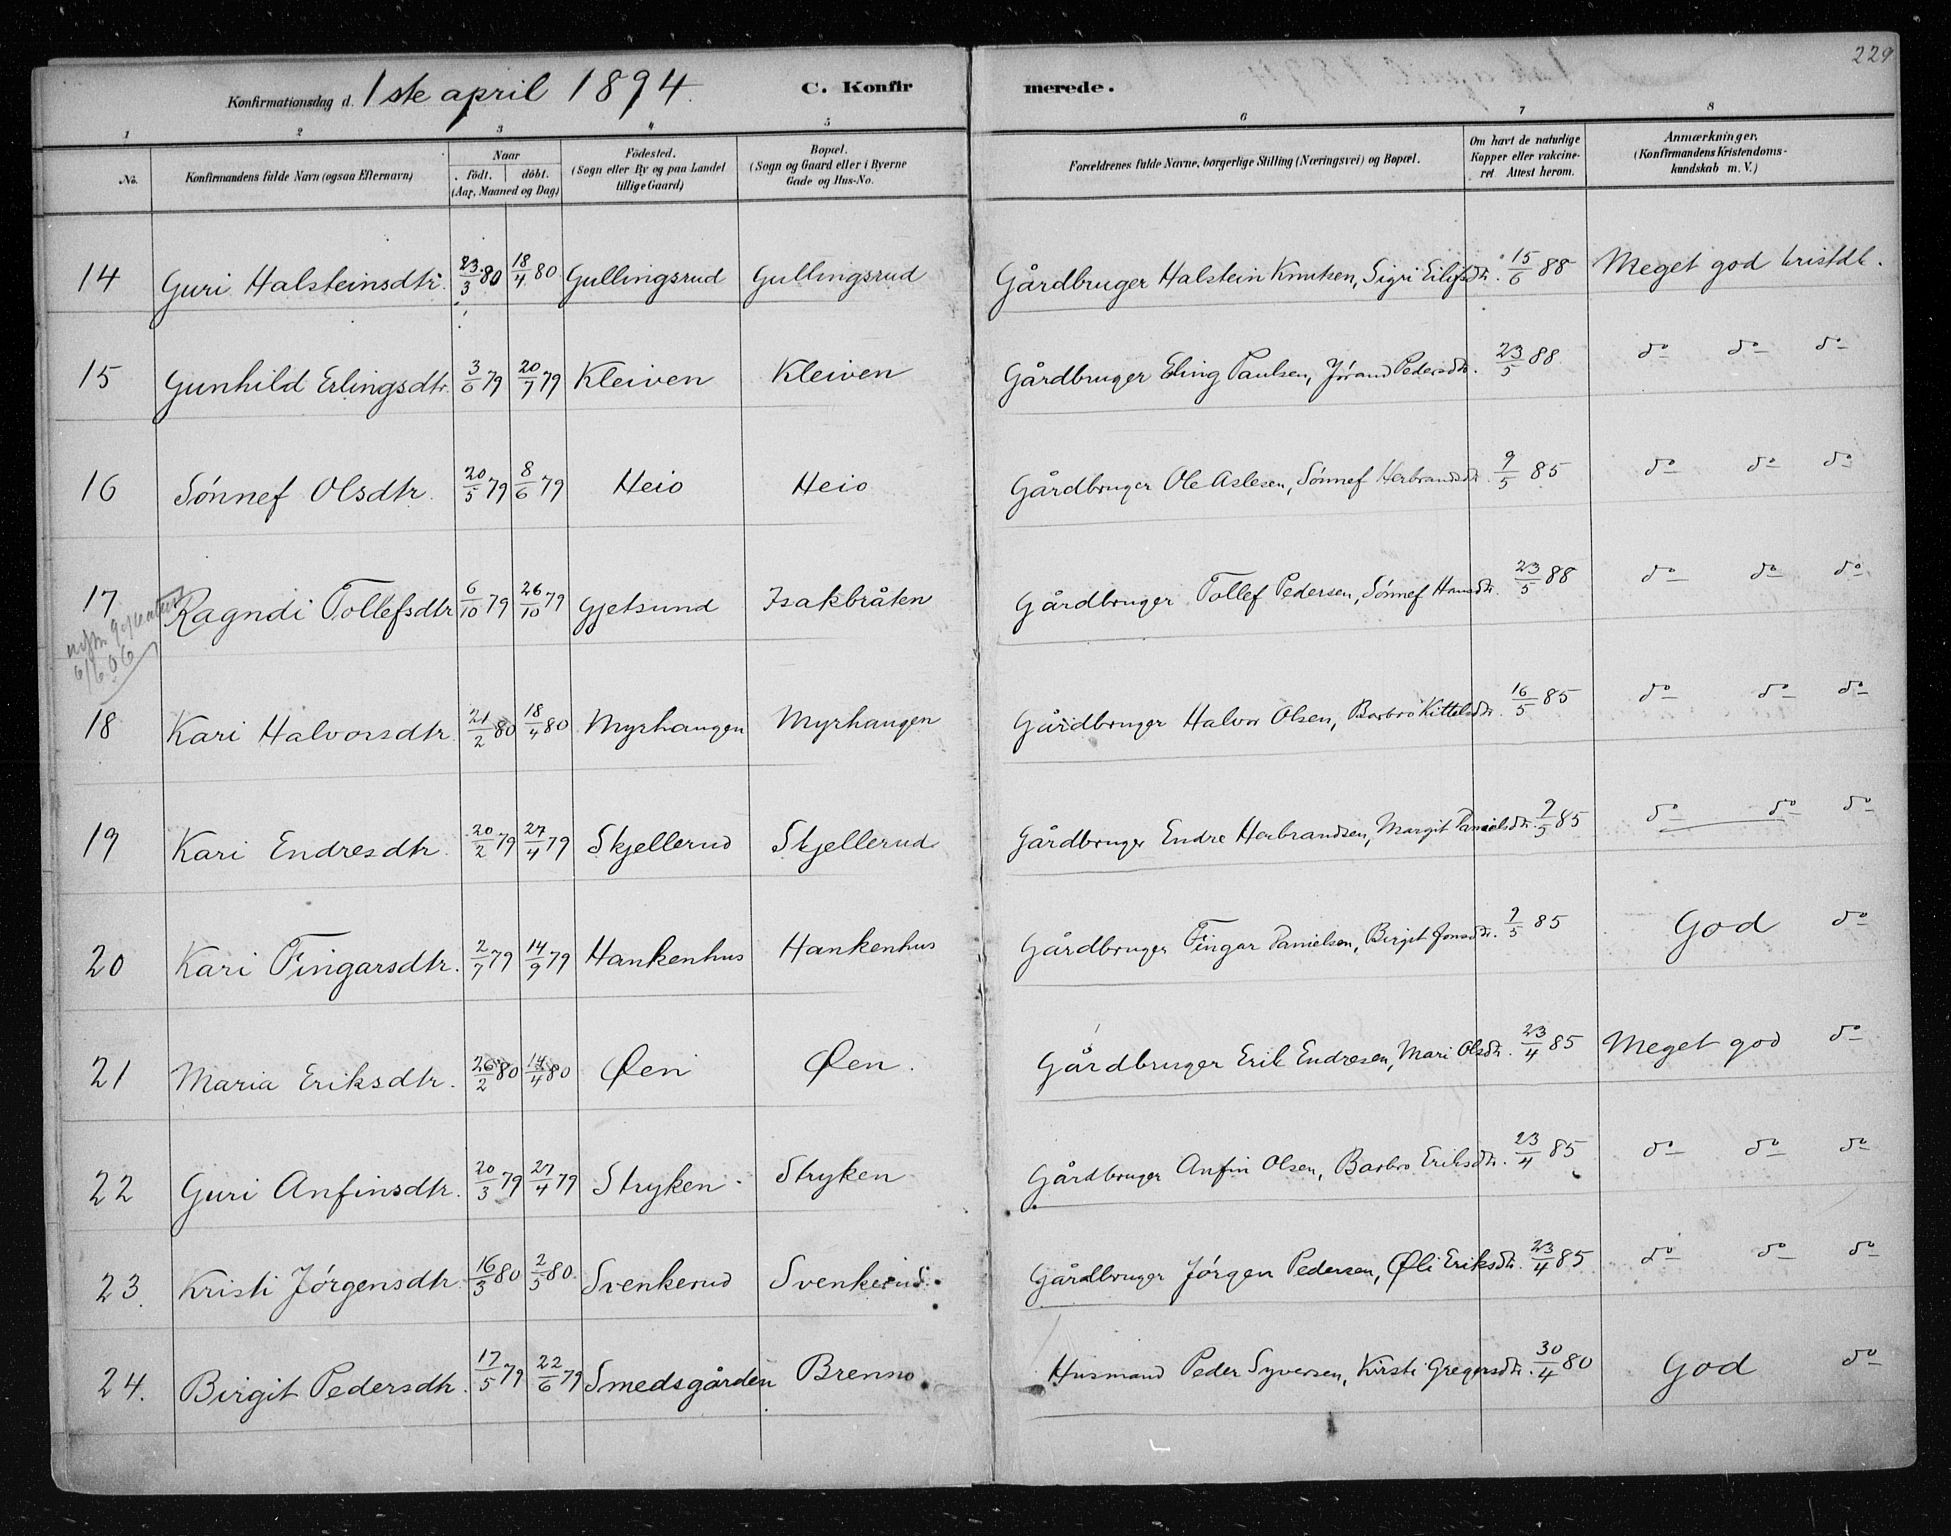 229
Konfirmationsdag d. 1ste april 1894. C. Konfirmerede.
1 2 3 4 5 6 7 8
No. Konfirmandens fulde Navn (ogsaa Efternavn) Naar födt. döbt. (Aar, Maaned og Dag) Födested. (Sogn eller By og paa Landet tillige Gaard) Bopæl. (Sogn og Gaard eller i Byerne Gade og Hus-No. Forældrenes fulde Navne, borgerlige Stilling (Næringsvei) og Bopæl. Om havt de naturlige Kopper eller vakcineret. Attest herom. Anmærkninger. (Konfirmandens Kristendomskundskab m. V.)
14 Guri Halsteinsdtr. 23/3 80 18/4 80 Gullingsrud Gullingsrud Gårdbruger Halstein Knutsen, Sigri Eilifsdtr. 15/6 88 Meget god kristdk.
15 Gunhild Erlingsdtr. 3/6 79 20/7 79 Kleiven Kleiven Gårdbruger Eling Paulsen, Jørand Pedersdtr. 23/5 88 do do do
16 Sønnef Olsdtr. 20/5 79 8/6 79 Heio Heio Gårdbruger Ole Aslesen, Sønnef Herbrandsdtr. 9/5 85 do do do
17 Ragndi Tollefsdtr 6/10 79 26/10 79 Gjetsund Isakbråten Gårdbruger Tollef Pedersen, Sønnef Hansdtr. 23/5 88 do do do
6/6 06
18 Kari Halvorsdtr. 21/2 80 18/4 80 Myrhaugen Myrhaugen Gårdbruger Halvor Olsen, Barbro Kittelsdtr. 16/5 85 do do do
19 Kari Endresdtr. 20/2 79 27/4 79 Skjellerud Skjellerud Gårdbruger Endre Herbrandsen, Margit Danielsdtr. 9/5 85 do do do
20 Kari Fingarsdtr. 2/7 79 14/9 79 Hankenhus Hankenhus Gårdbruger Fingar Danielsen, Birgit Jonsdtr. 9/5 85 God do
21 Maria Eriksdtr. 26/2 80 14/4 80 Øen Øen. Gårdbruger Erik Endresen, Mari Olsdtr. 23/4 85 Meget god do
22 Guri Anfinsdtr. 20/3 79 27/4 79 Stryken Stryken Gårdbruger Anfin Olsen, Barbro Eriksdtr. 23/4 85 do do do
23. Kristi Jørgensdtr. 16/3 80 2/5 80. Svenkerud Svenkerud. Gårdbruger Jørgen Pedersen, Øli Eriksdtr. 23/4 85 do do do
24. Birgit Pedersdtr. 17/5 79 22/6 79 Smedsgården Brenno Husmand Peder Syversen, Kirsti Gregersdtr. 30/4 80 God do